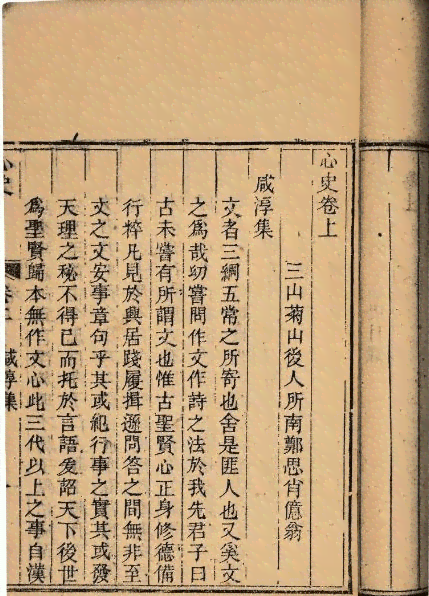 心史卷上
三山菊山後人所南鄭思肖億翁
咸淳集
文者三綱五常之所寄也舍是匪人也又奚文
之爲哉㓜嘗問作文作詩之法於我先君子曰
古未嘗有所謂文也惟古聖賢心正身修德備
行粹凡見於興居踐履揖遜問答之間無非至
文之文安事章句乎其或紀行事之實其或發
天理之秘不得已而托於言語爰詔天下後世
爲聖賢歸本無作文心此三代以上之事自漢
心史
咸淳集